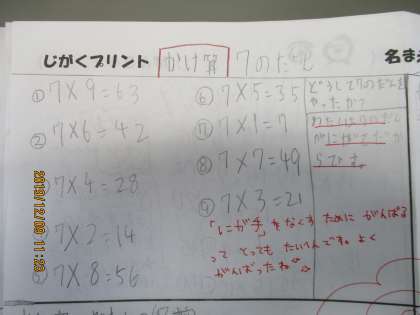 じがくプリント かけ算 7のだん 名ま
① 7×9=63
② 7×6=42
7×4=28
7×2=14
7×8=56
⑥ 7×5=35
⑦ 7×1=7
⑧ 7×7=49
⑨ 7×3=21
どうして7のだんを
やったか?
わたしは7のだん
がにがてだか
らです。
「にが手」をなくすためにがんばる
って とってもたいへんです。よく
がんばったね
2019/12/09 11:23